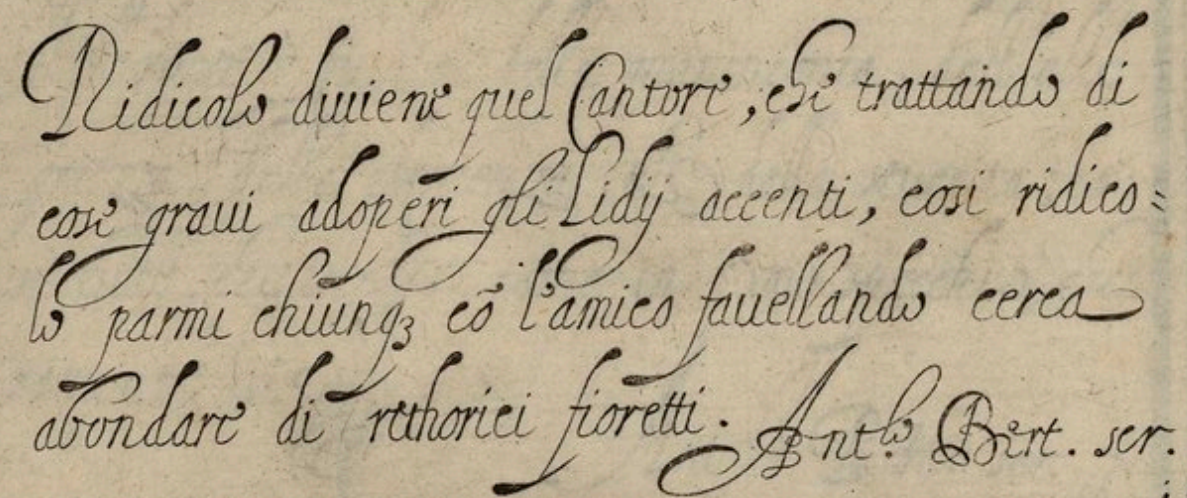 Ridicolo diuiene quel Cantore, che trattando di
cose graui adoperi gli Lidij accenti, cosi ridico=
lo parmi chiunqꝫ cō l'amico fauellando cerca
abondare di rethorici fioretti. Ant.º Bert. scr.